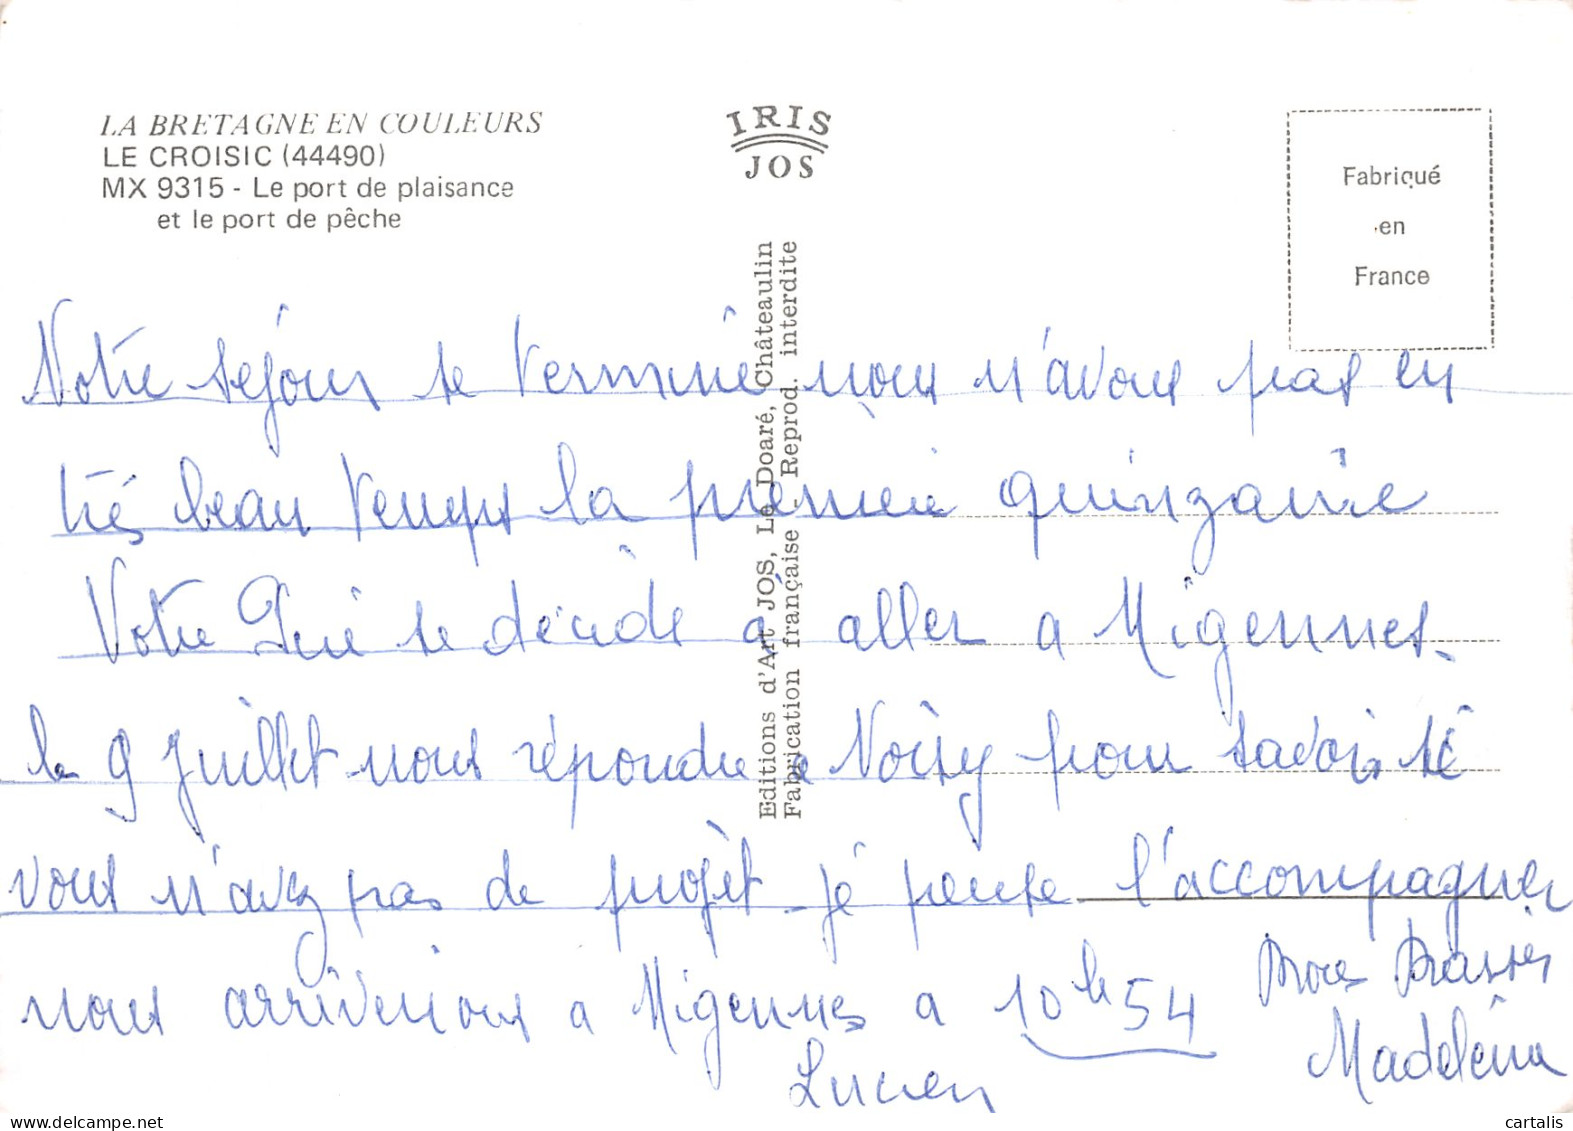 LA BRETAGNE EN COULEURS
LE CROISIC (44490)
MX 9315 - Le port de plaisance
et le port de pêche
IRIS
JOS
Fabriqué
en
France
Editions d'Art JOS, Le Doaré, Châteaulin
Fabrication française - Reprod. interdite
Notre séjour se termine nous n'avons pas eu
très beau temps la première quinzaine
Votre se décide à aller a Migennes.
le 9 Juillet nous répondre a Noisy pour savoir si
vous n'avez pas de projet je pense l'accompagner
nous arriverions a Migennes a 10h54
Lucien
Madeleine
cartalis